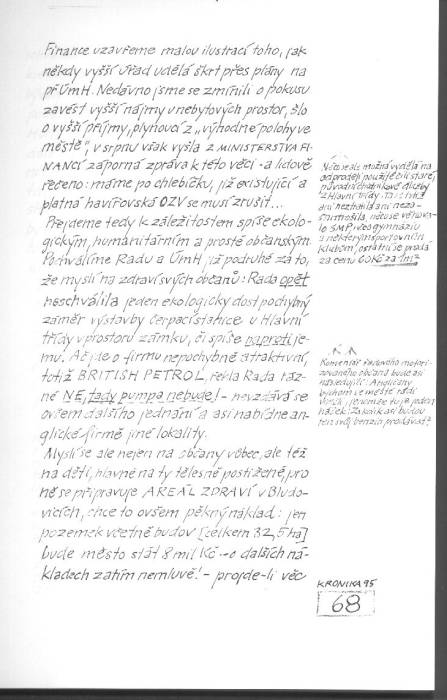 Finance uzavřeme malou ilustrací toho, jak
někdy vyšší úřad udělá škrt přes plány na
př ÚmH. Nedávno jsme se zmínili o pokusu
zavést vyšší nájmy u nebytových prostor, šlo
o vyšší příjmy, plynoucí z „výhodné polohy ve
městě", v srpnu však vyšla z MINISTERSTVA FI-
NANCÍ záporná zpráva k této věci - a lidově
řečeno: máme po chlebíčku, již existující a
platná havířovská OZV se musí zrušit...
Přejdeme tedy k záležitostem spíše ekolo-
gickým, humanitárním a prostě občanským.
Pochválíme Radu a ÚmH, již podruhé za to,
že myslí na zdraví svých občanů: Rada opět
neschválila jeden ekologicky dost pochybný
záměr výstavby čerpací stanice u Hlavní
třídy v prostoru zámku, či spíše naproti je-
mu. Ač jde o firmu nepochybně atraktivní,
totiž BRITISH PETROL, řekla Rada ráz-
ně NE, tady pumpa nebude! - nevzdává se
ovšem dalšího jednání a asi nabídne an-
glické firmě jiné lokality.
Myslí se ale nejen na občany vůbec, ale též
na děti, hlavně na ty tělesně postižené, pro
ně se připravuje AREÁL ZDRAVÍ v Bludo-
vicích, chce to ovšem pěkný náklad: jen
pozemek včetně budov [celkem 32,5 ha]
bude město stát 8 mil Kč - o dalších ná-
kladech zatím nemluvě! - projde-li věc
Něco se ale možná vydělá na
odprodeji použité či staré,
původní chodníkové dlažby
z Hlavní třídy. Ta totiž
ani
něco se věnova-
lo SMP, něco gymnáziu
a některým sportovním
klubům, ostatní se prodá
za cenu 60Kč za 1m²
Komentář řadového motori-
zovaného občana bude asi
následující: Angličany
bychom ve městě rádi
viděli, jenomže tu je jeden
háček: Za kolik asi budou
ten svůj benzín prodávat?
KRONIKA 95
68